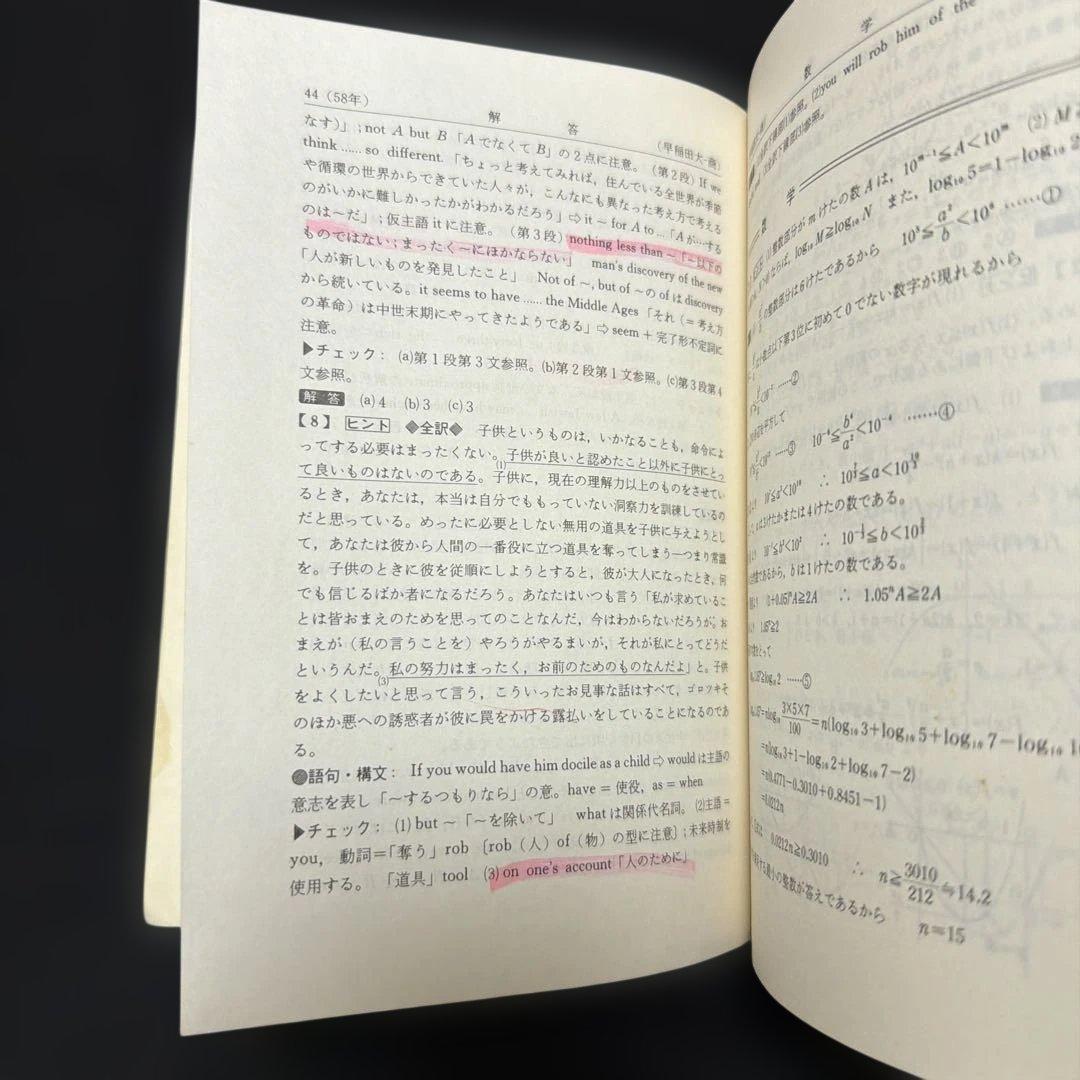 44（58年）
解　　答
（早稲田大-商）
なす）」；not A but B「AでなくてB」の2点に注意。（第2段）If we
think …… so different.「ちょっと考えてみれば，住んでいる全世界が季節
や循環の世界からできていた人々が，こんなにも異なった考え方で考える
のがいかに難しかったかがわかるだろう」⇨it ~ for A to …「Aが…する
のは~だ」；仮主語 it に注意。（第3段）nothing less than ~「~以下の
ものではない；まったく~にほかならない」　man's discovery of the new
「人が新しいものを発見したこと」　Not of ~, but of ~の of は discovery
から続いている。it seems to have …… the Middle Ages「それ（＝考え方
の革命）は中世末期にやってきたようである」⇨seem + 完了形不定詞に
注意。
▶チェック：(a)第1段第3文参照。(b)第2段第1文参照。(c)第3段第4
文参照。
解答　(a) 4　(b) 3　(c) 3
【8】ヒント　◆全訳◆　子供というものは，いかなることも，命令によ
ってする必要はまったくない。子供が良いと認めたこと以外に子供にとっ
(1)
て良いものはないのである。子供に，現在の理解力以上のものをさせてい
るとき，あなたは，本当は自分でももっていない洞察力を訓練しているの
だと思っている。めったに必要としない無用の道具を子供に与えようとし
て，あなたは彼から人間の一番役に立つ道具を奪ってしまう―つまり常識
を。子供のときに彼を従順にしようとすると，彼が大人になったとき，何
でも信じるばか者になるだろう。あなたはいつも言う「私が求めているこ
とは皆おまえのためを思ってのことなんだ，今はわからないだろうが。お
まえが（私の言うことを）やろうがやるまいが，それが私にとってどうだ
というんだ。私の努力はまったく，お前のためのものなんだよ」と。子供
(3)
をよくしたいと思って言う，こういったお見事な話はすべて，ゴロツキそ
のほか悪への誘惑者が彼に罠をかける露払いをしていることになるのであ
る。
●語句・構文：If you would have him docile as a child⇨would は主語の
意志を表し「~するつもりなら」の意。have = 使役，as = when
▶チェック：(1) but ~「~を除いて」　what は関係代名詞。(2)主語＝
you，動詞＝「奪う」rob〔rob（人）of（物）の型に注意〕；未来時制を
使用する。「道具」tool　(3) on one's account「人のために」
数　学
(2)you will rob him of the
参照。
(3)参照。
数　学
整数部分が m けたの数 A は，10^{m-1}≦A<10^m　(2) M≧
ならば，log₁₀ M≧log₁₀ N　また，log₁₀ 5=1−log₁₀ 2
の整数部分は6けたであるから　10⁵≦a²/b<10⁶ ……①
小数点以下第3位に初めて0でない数字が現れるから
……②
平方して
……③　10⁻⁶≦b⁴/a²<10⁻⁴ ……④
∴
a は3けたかまたは4けたの数である。
∴
であるから，b は1けたの数である。
(1+0.05)ⁿA≧2A　∴　1.05ⁿA≧2A
1.05ⁿ≧2
をとって
≧log₁₀ 2 ……⑤
=nlog₁₀ 3×5×7/100 =n(log₁₀ 3+log₁₀ 5+log₁₀ 7−log₁₀
=n(log₁₀ 3+1−log₁₀ 2+log₁₀ 7−2)
=n(0.4771−0.3010+0.8451−1)
=0.0212n
0.0212n≧0.3010　∴　n≧3010/212≒14.2
最小の整数が答えであるから　n=15